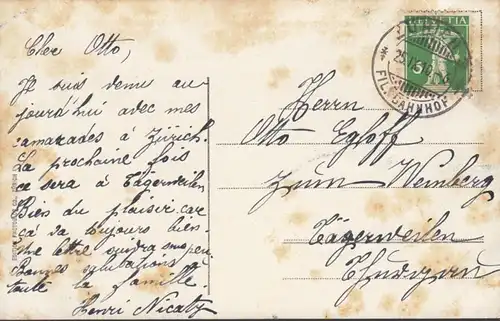 Cher Otto,
Je suis venu au
jourd'hui avec mes
camarades à Zürich.
La prochaine fois
ce sera à Tägerweilen
Bien du plaisir car
ça va toujours bien.
Une lettre suivra peu
Bonnes salutations à
toute la famille.
Henri Nicaty
HELVETIA
5
FIL. BAHNHOF
Herrn
Otto Egloff
zum Weinberg
Tägerweilen
Thurgau